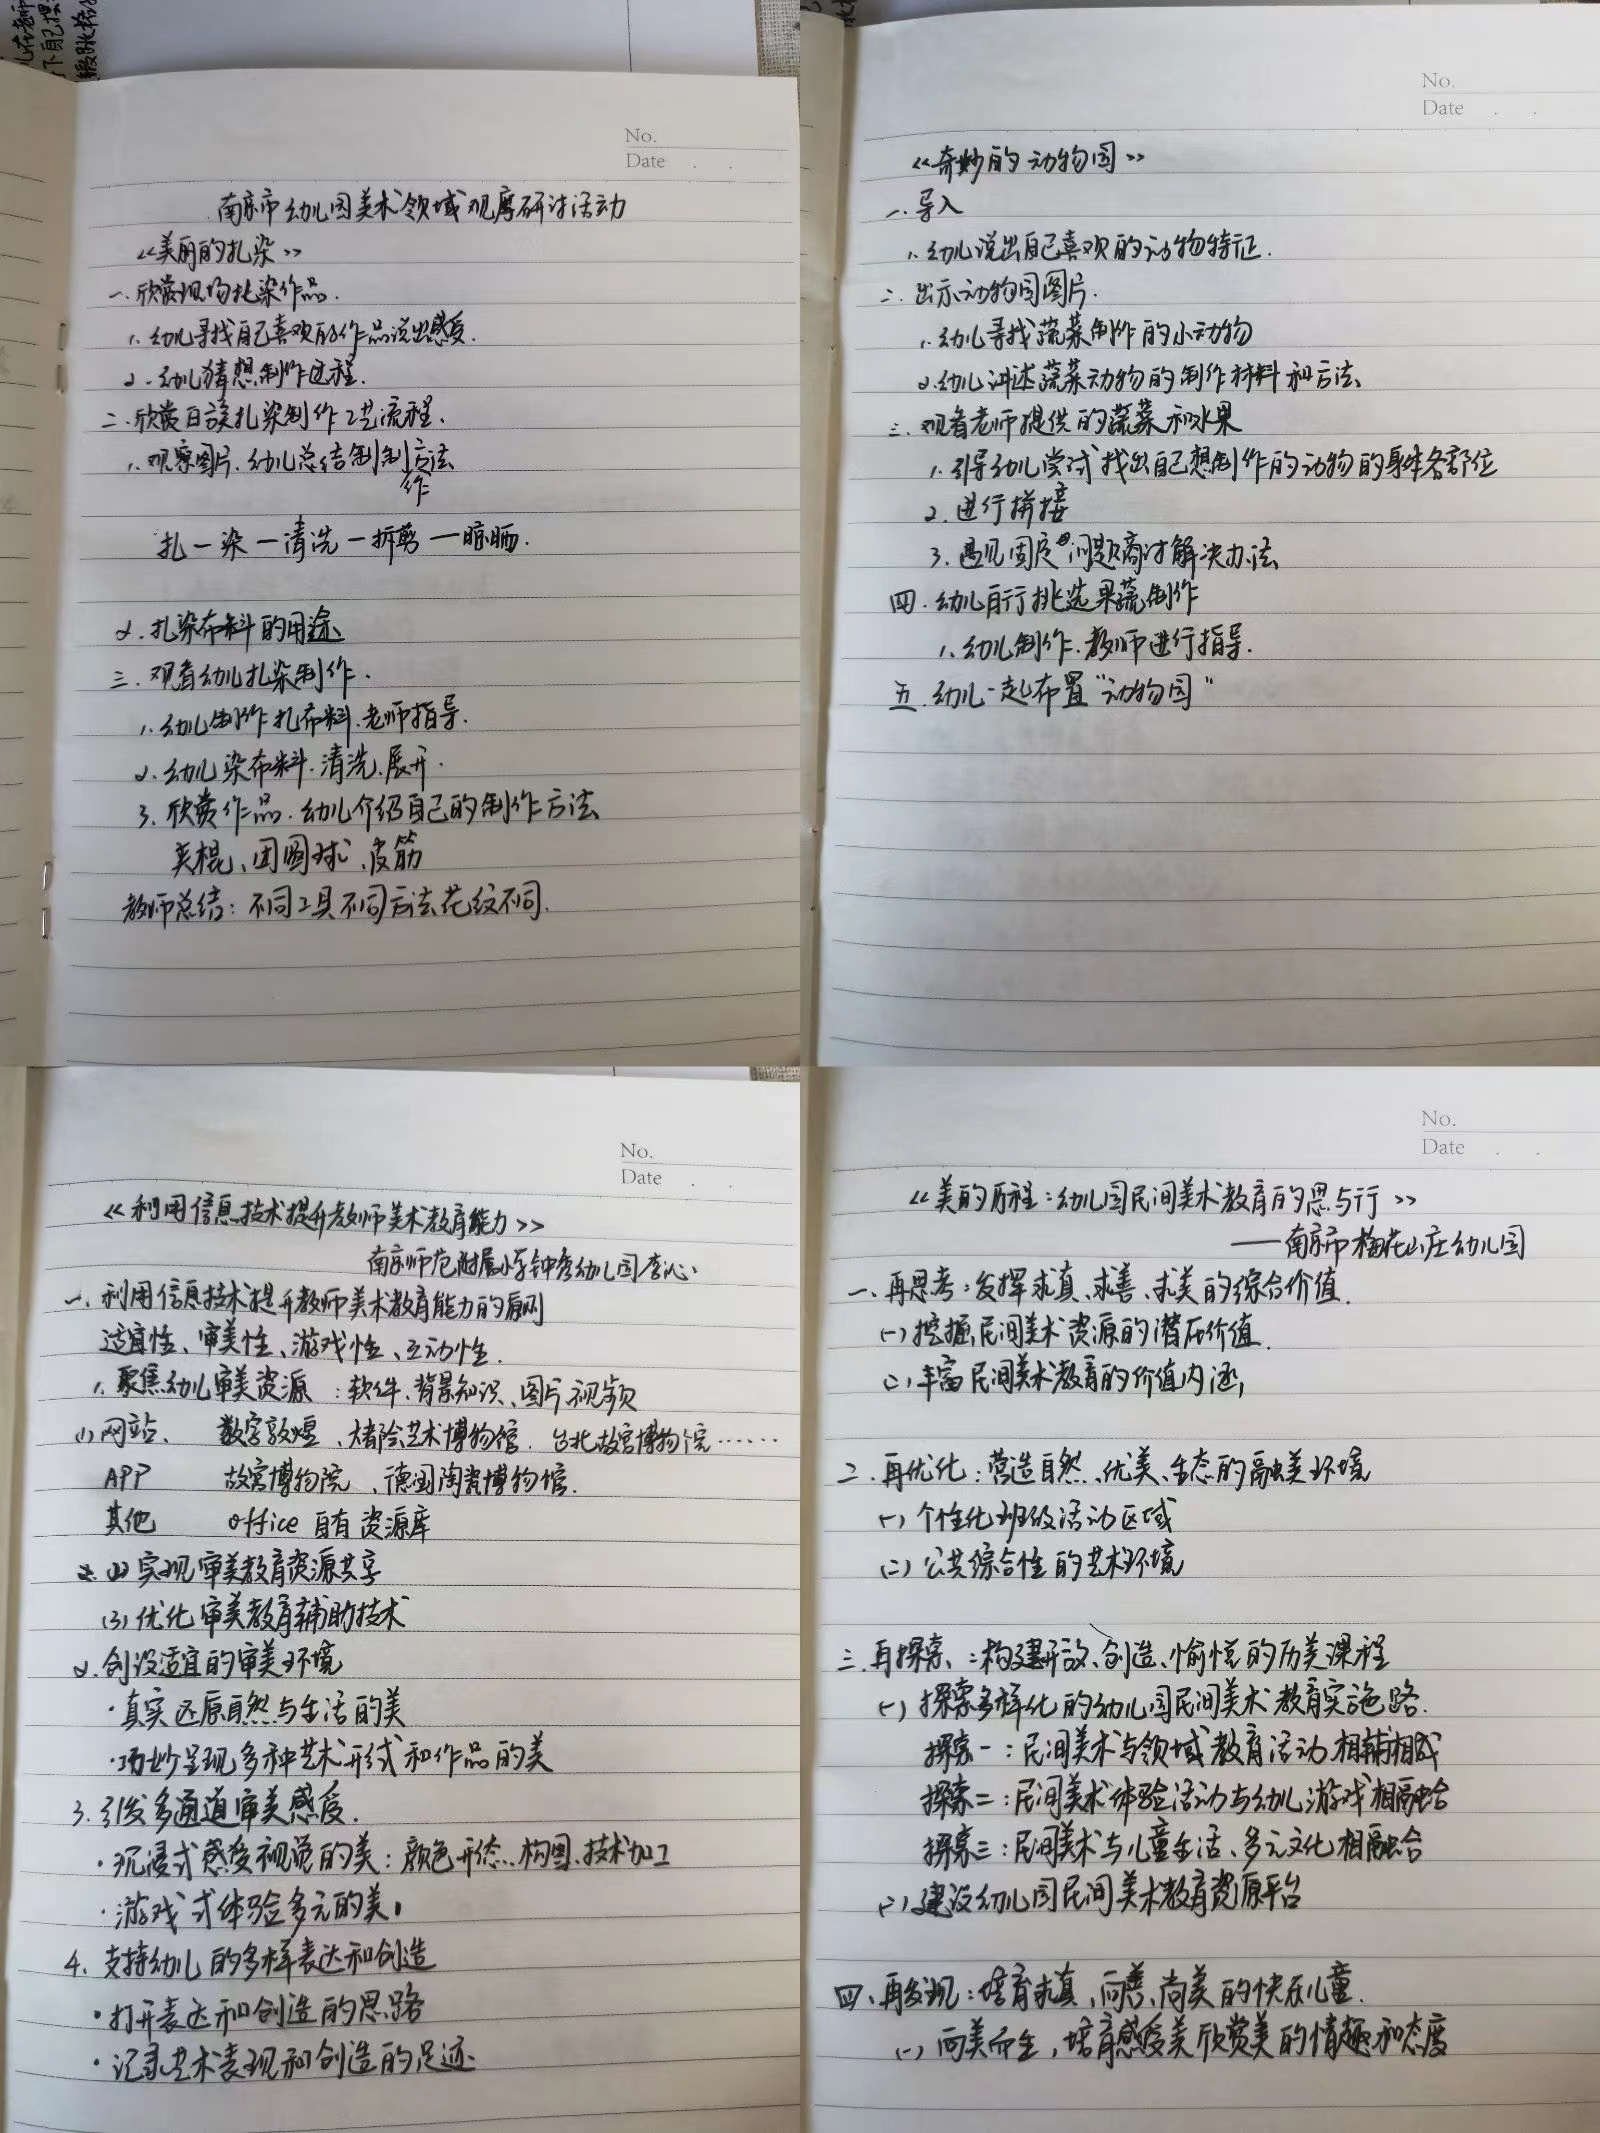 No.
Date
南京市幼儿园美术领域观摩研讨活动
《美丽的扎染》
一.欣赏现场扎染作品.
1.幼儿寻找自己喜欢的作品说出感受.
2.幼儿猜想制作过程.
二.欣赏白族扎染制作工艺流程.
1.观察图片.幼儿总结制作方法
扎一染一清洗一拆剪一晾晒.
2.扎染布料的用途.
三.观看幼儿扎染制作.
1.幼儿制作扎布料.老师指导.
2.幼儿染布料.清洗.展开.
3.欣赏作品.幼儿介绍自己的制作方法
夹棍、团圆球、皮筋
教师总结:不同工具不同方法花纹不同.
No.
Date
《奇妙的动物园》
一.导入
1.幼儿说出自己喜欢的动物特征.
二.出示动物园图片.
1.幼儿寻找蔬菜制作的小动物
2.幼儿讲述蔬菜动物的制作材料和方法
三.观看老师提供的蔬菜和水果
1.引导幼儿尝试找出自己想制作的动物的身体各部位
2.进行拼接
3.遇见固定问题商讨解决办法
四.幼儿自行挑选果蔬制作
1.幼儿制作.教师进行指导.
五.幼儿一起布置“动物园”
No.
Date
《利用信息技术提升教师美术教育能力》
南京师范附属小学钟秀幼儿园李沁
一、利用信息技术提升教师美术教育能力的原则
适宜性、审美性、游戏性、互动性.
1.聚焦幼儿审美资源:软件、背景知识、图片、视频
(1)网站、 数字敦煌、 艺术博物馆.台北故宫博物院……
APP 故宫博物院、德国陶瓷博物馆.
其他 office自有资源库
(2)实现审美教育资源共享
(3)优化审美教育辅助技术
2.创设适宜的审美环境
·真实还原自然与生活的美
·巧妙呈现多种艺术形式和作品的美
3.引发多通道审美感受.
·沉浸式感受视觉的美:颜色、形态、构图、技术加工
·游戏式体验多元的美.
4.支持幼儿的多样表达和创造
·打开表达和创造的思路
·记录艺术表现和创造的足迹
No.
Date
《美的历程:幼儿园民间美术教育的思与行》
——南京市梅花山庄幼儿园
一、再思考:发挥求真、求善、求美的综合价值.
(一)挖掘民间美术资源的潜在价值.
(二)丰富民间美术教育的价值内涵,
二、再优化:营造自然、优美、生态的融美环境
(一)个性化班级活动区域
(二)公共综合性的艺术环境
三、再探索:构建开放、创造、愉悦的历美课程
(一)探索多样化的幼儿园民间美术教育实施路.
探索一:民间美术与领域教育活动相辅相成
探索二:民间美术体验活动与幼儿游戏相融合
探索三:民间美术与儿童生活、多元文化相融合
(二)建设幼儿园民间美术教育资源平台
四、再发现:培育求真、向善、尚美的快乐儿童.
(一)向美而生,培育感受美欣赏美的情趣和态度